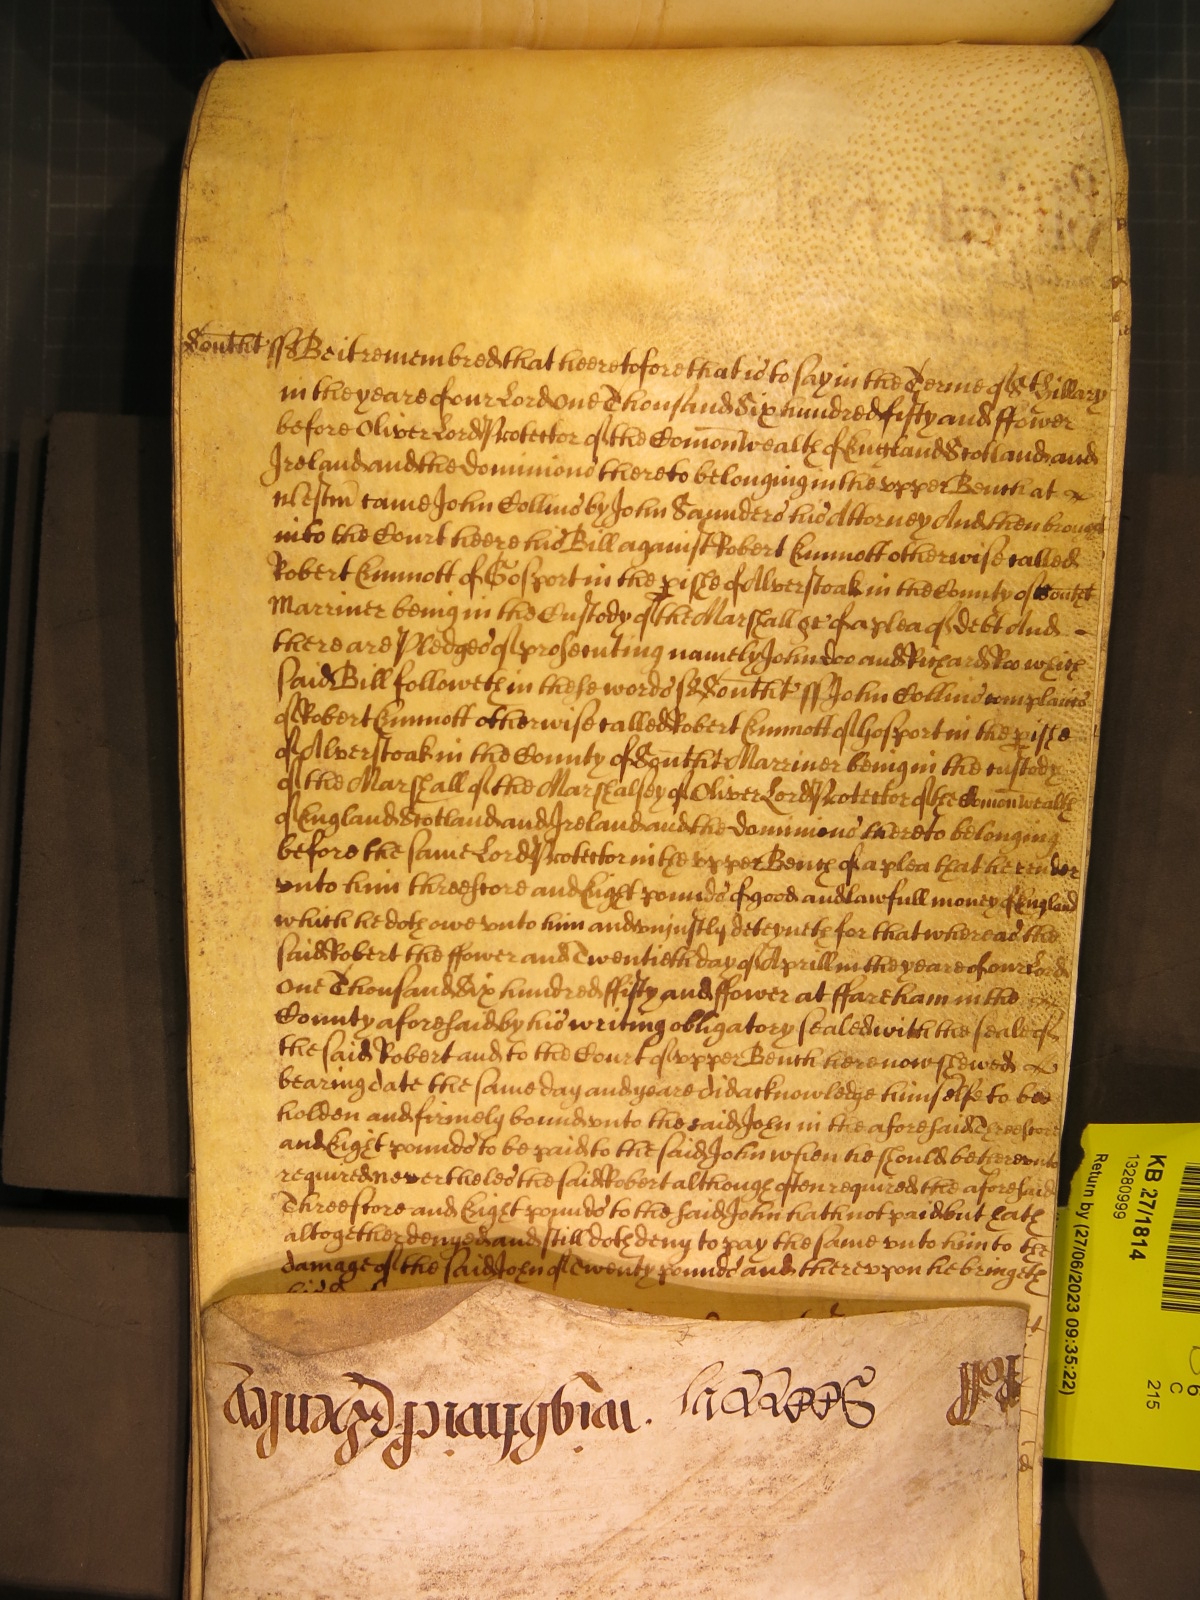 Southt ss Be it remembred that heeretofore that is to say in the Terme of St Hillary
in the yeare of our Lord One Thousand Six hundred fifty and ffower
before Oliver Lord Protector of the Comonwealth of England Scotland and
Ireland and the dominions thereto belonging in the upper Bench at
Westm came John Collins by John Saunders his Attorney And then brought
into the Court heere his Bill against Robert Emmott otherwise called
Robert Emmott of Gosport in the pishe of Alverstoak in the County of Southt
Marriner being in the Custody of the Marshall &c of a plea of debt And
there are Pledges of prosecuting namely John doo and Richard Roo which
said Bill followeth in these words ss Southt ss John Collins complaines
of Robert Emmott otherwise called Robert Emmott of Gosport in the pishe
of Alverstoak in the County of Southt Marriner being in the custody
of the Marshall of the Marshalsey of Oliver Lord Protector of the Comonwealth
of England Scotland and Ireland and the dominions thereto belonging
before the same Lord Protector in the upper Bench of a plea that he render
unto him threescore and Eight pounds of good and lawfull money of England
which he doth owe unto him and unjustly deteyneth for that whereas the
said Robert the ffower and Twentieth day of Aprill in the yeare of our Lord
One Thousand Six hundred ffifty and ffower at ffareham in the
County aforesaid by his writing obligatory sealed with the seale of
the said Robert and to the Court of upper Bench here now shewed
bearing date the same day and yeare did acknowledge himselfe to bee
holden and firmely bound unto the said John in the aforesaid Threescore
and Eight pounds to be paid to the said John when he should be thereunto
required neverthelesse the said Robert although often required the aforesaid
Threescore and Eight pounds to the said John hath not paid but hath
altogether denyed and still doth deny to pay the same unto him to the
damage of the said John of Twenty pounds and thereupon he bringeth
KB 27/1814
13280999
Return by (27/06/2023 09:35:22)
C
215